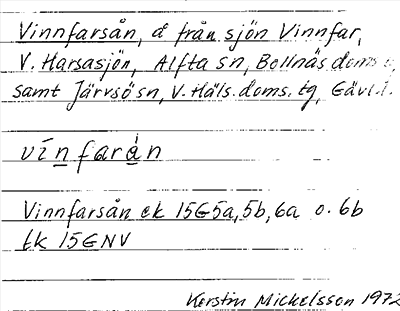 Vinnfarsån, å från sjön Vinnfar,
V. Harsasjön, Alfta sn, Bollnäs doms
samt Järvsö sn, V. Häls. doms. tg, Gävl.l.
vinfarån
Vinnfarsån ek 15G5a, 5b, 6a o. 6b
tk 15GNV
Kerstin Mickelsson 1972